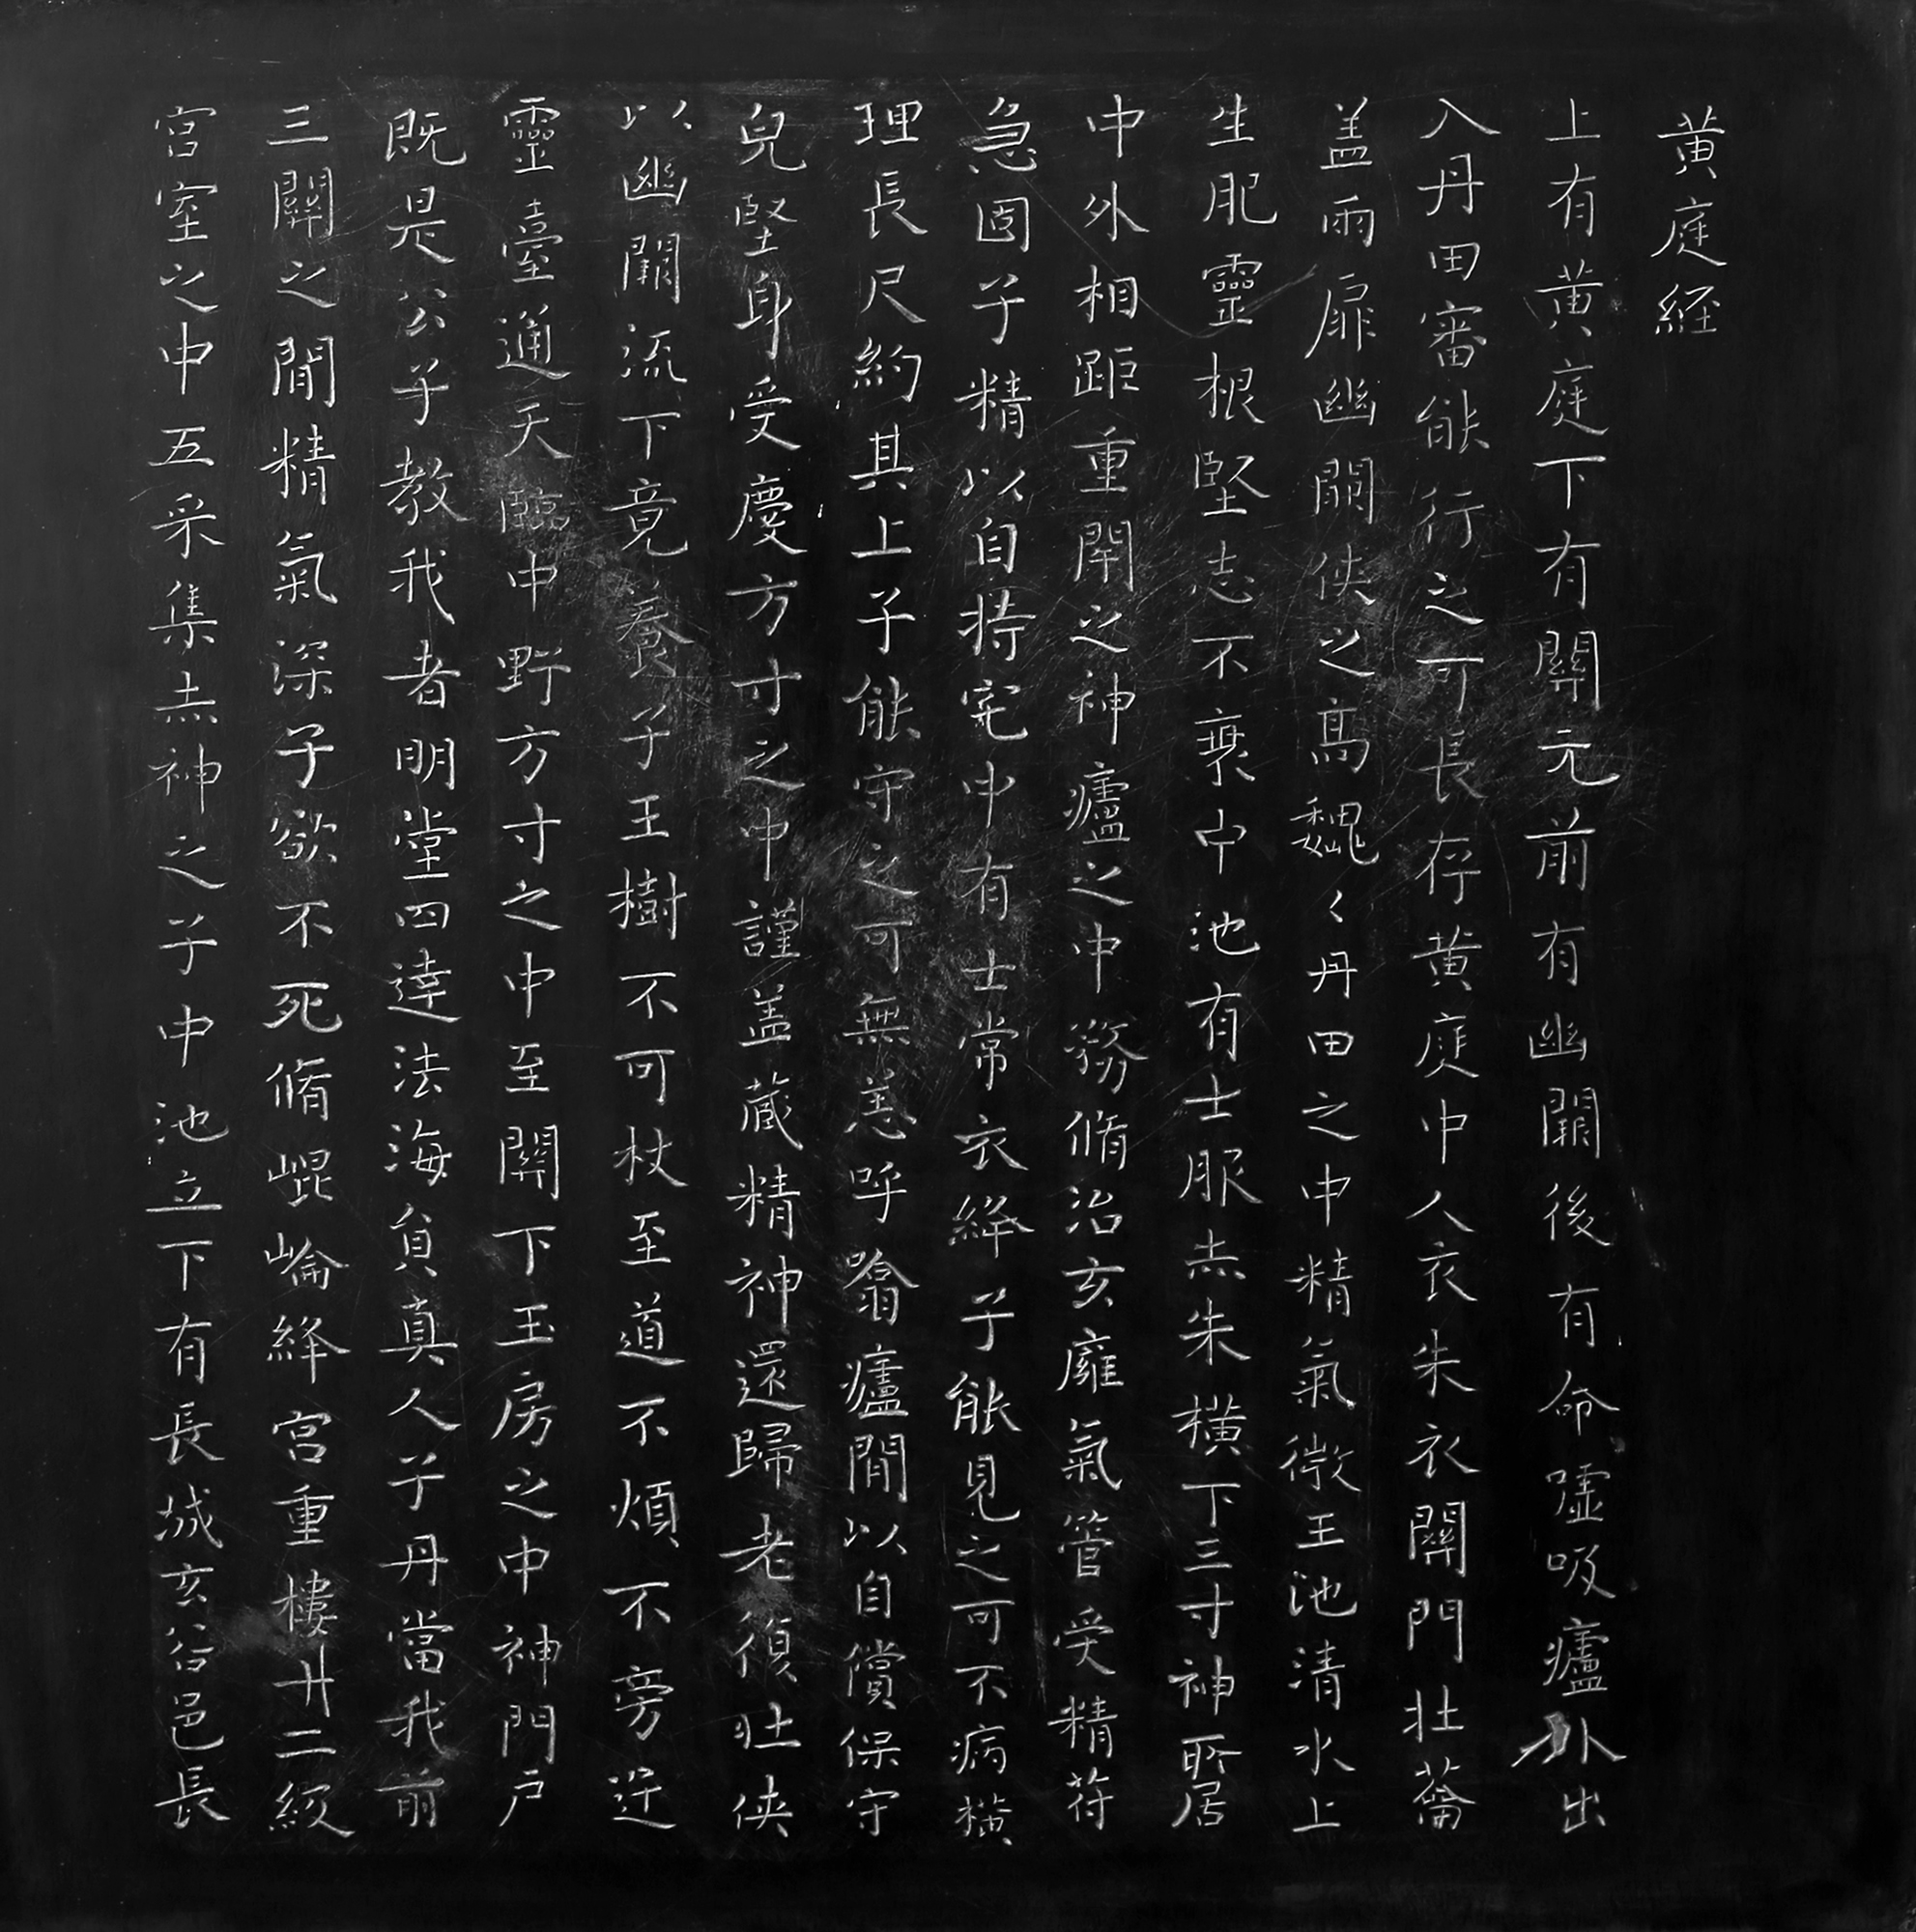 黄庭経
上有黄庭下有關元前有幽闕後有命噓吸廬外出
入丹田審能行之可長存黄庭中人衣朱衣關門壮蘥
盖兩扉幽闕侠之高魏〻丹田之中精氣微王池清水上
生肥靈根堅志不衰中池有士服赤朱横下三寸神所居
中外相距重閇之神廬之中務脩治玄廱氣管受精苻
急固子精以自持宅中有士常衣絳子能見之可不病横
理長尺約其上子能守之可無恙呼噏廬閒以自償保守
兒堅身受慶方寸之中謹盖藏精神還歸老復壮侠
以幽闕流下竟養子王樹不可杖至道不煩不旁迕
靈臺通天臨中野方寸之中至關下玉房之中神門户
既是公子教我者明堂四達法海負真人子丹當我前
三關之閒精氣深子欲不死脩崐崘絳宫重樓廿二級
宫室之中五采集赤神之子中池立下有長城玄谷邑長